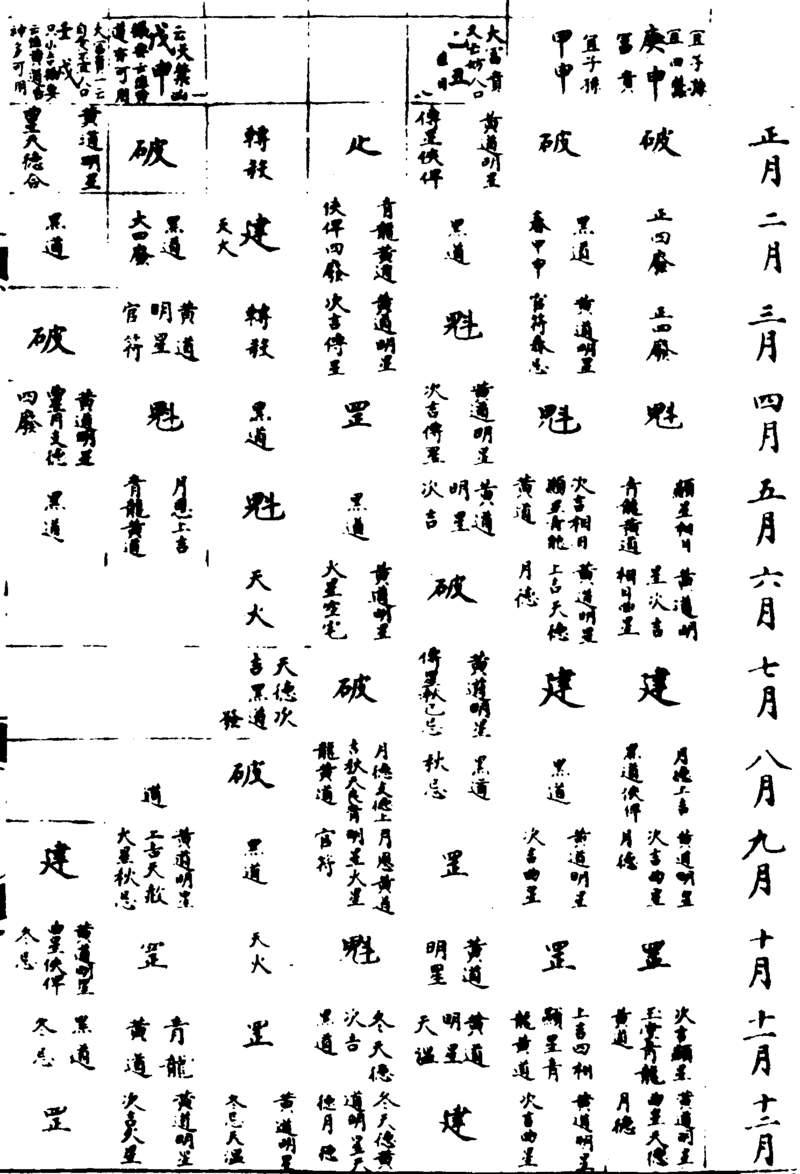 正月
二月
三月
四月
五月
六月
七月
八月
九月
十月
十一月
十二月
宜子孫
宜四
庚申
富貴
破
正四廢
正四廢
魁
顯星相日
青龍黃道
黃道明
星次吉
相日曲星
建
月德上吉
黑道俠俾
黃道明星
次吉曲星
月德
罡
次吉顯星
青龍
黃道
黃道明星
曲星天德
月德
宜子孫
甲申
破
黑道
春甲申
黃道明星
官符春忌
魁
次吉相日
顯星青龍
黃道
黃道明星
上吉天德
月德
建
黑道
黃道明星
次吉曲星
罡
上吉四相
顯星青
龍黃道
黃道明星
次吉曲星
大富貴
人口
丑
黃道明星
傳星俠俾
黑道
魁
黃道明星
次吉傳星
黃道
明星
次吉
破
黃道明星
傳星秋己忌
黑道
秋忌
罡
黃道
明星
黃道
明星
天溫
建
止
青龍黃道
俠俾四廢
黃道明星
次吉傳星
罡
黑道
黃道明星
火星空宅
破
月德支德上
吉秋天良青
龍黃道
月恩黃道
明星火星
官符
魁
冬天德
次吉
黑道
冬天德黃
道明星天
德月德
轉殺
建
天火
轉殺
黑道
魁
天火
天德次
吉黑道
發
破
黑道
天火
罡
黃道明星
冬忌天溫
戊申
道亦可用
破
黑道
大四廢
黃道
明星
官符
魁
月恩上吉
青龍黃道
道
黃道明星
上吉天赦
火星秋忌
罡
青龍
黃道
黃道明星
次吉火星
大富貴一云
壬戌
神多可用
黃道明星
曲星天德合
黑道
破
黃道明星
曲星月支德
四廢
黑道
建
黃道明星
曲星俠俾
冬忌
黑道
冬忌
罡